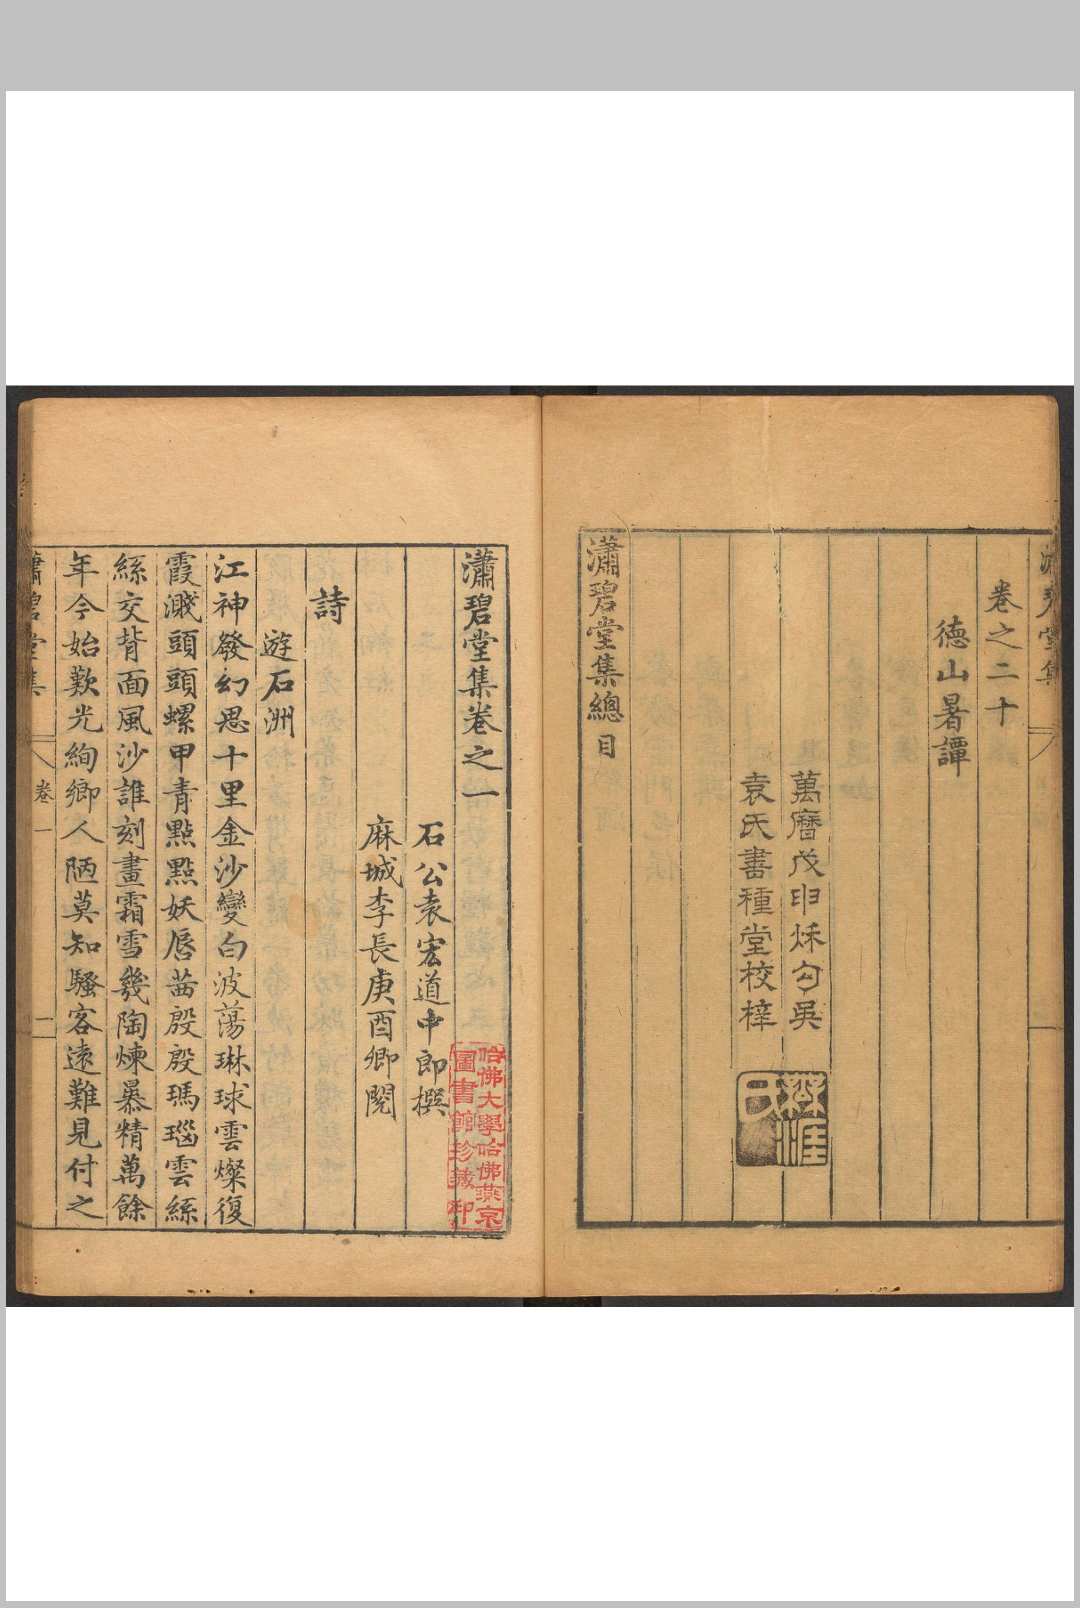 卷之二十
德山暑譚
萬曆戊申秌勾吳
袁氏書種堂校梓
瀟碧堂集總目
瀟碧堂集卷之一
石公袁宏道中郎撰
麻城李長庚酉卿閱
哈佛大學哈佛燕京
圖書館珍藏印
詩
遊石洲
江神發幻思十里金沙變白波蕩琳球雲燦復
霞濺頭頭螺甲青點點妖唇茜殷殷瑪瑙雲絲
絲交背面風沙誰刻畫霜雪幾陶煉暴精萬餘
年今始歎光絢鄉人陋莫知騷客遠難見付之
瀟碧堂集
卷一
一